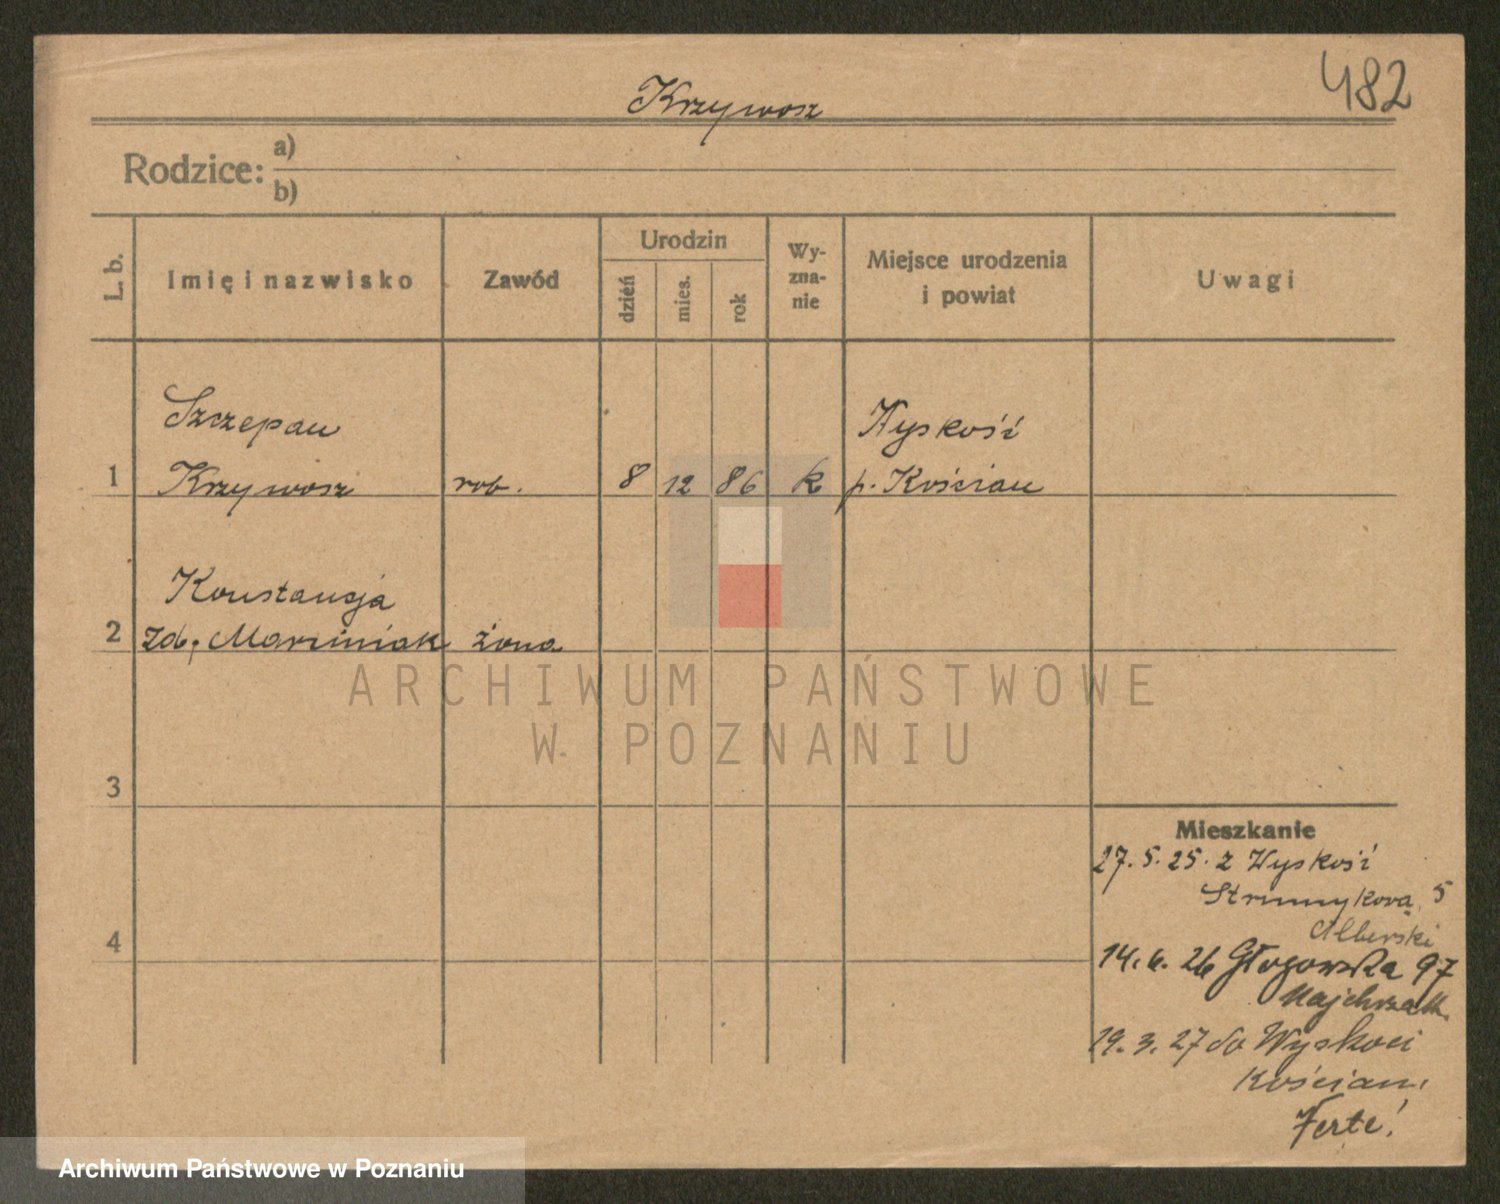 482
Krzywosz
Rodzice: a)
b)
L. b.
Imię i nazwisko
Zawód
Urodzin
dzień
mies.
rok
Wy-
zna-
nie
Miejsce urodzenia
i powiat
Uwagi
Szczepan
Wyskość
1 Krzywosz rob. 8 12 86 k p. Kościan
Konstancja
2 zd. Marciniak żona
ARCHIWUM PAŃSTWOWE
W POZNANIU
3
Mieszkanie
27. 5. 25. z Wyskość
5
4
14. 6. 26 Głogowska 97
Majchrzak
19. 3. 27 do Wyskoci
Kościan
Archiwum Państwowe w Poznaniu